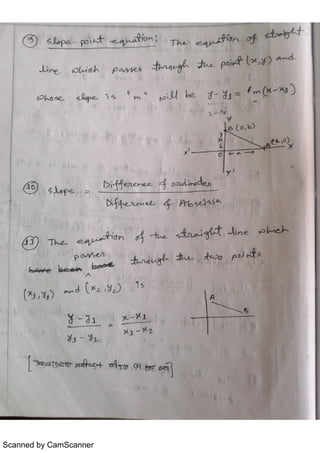 ⑨ slope-point equation: The equation of straight
line which passes through the point (x,y) and
whose slope is "m" will be y-y₁ = m(x-x₁)
Y
B(0,b)
b
X' O ← a → A(a,0) X
Y'
⑩ slope = Difference of ordinates / Difference of Abscissa
⑪ The equation of the straight line which
passes through the two points
(x₁,y₁) and (x₂,y₂) is
(y-y₁)/(y₁-y₂) = (x-x₁)/(x₁-x₂)
A
B
Scanned by CamScanner